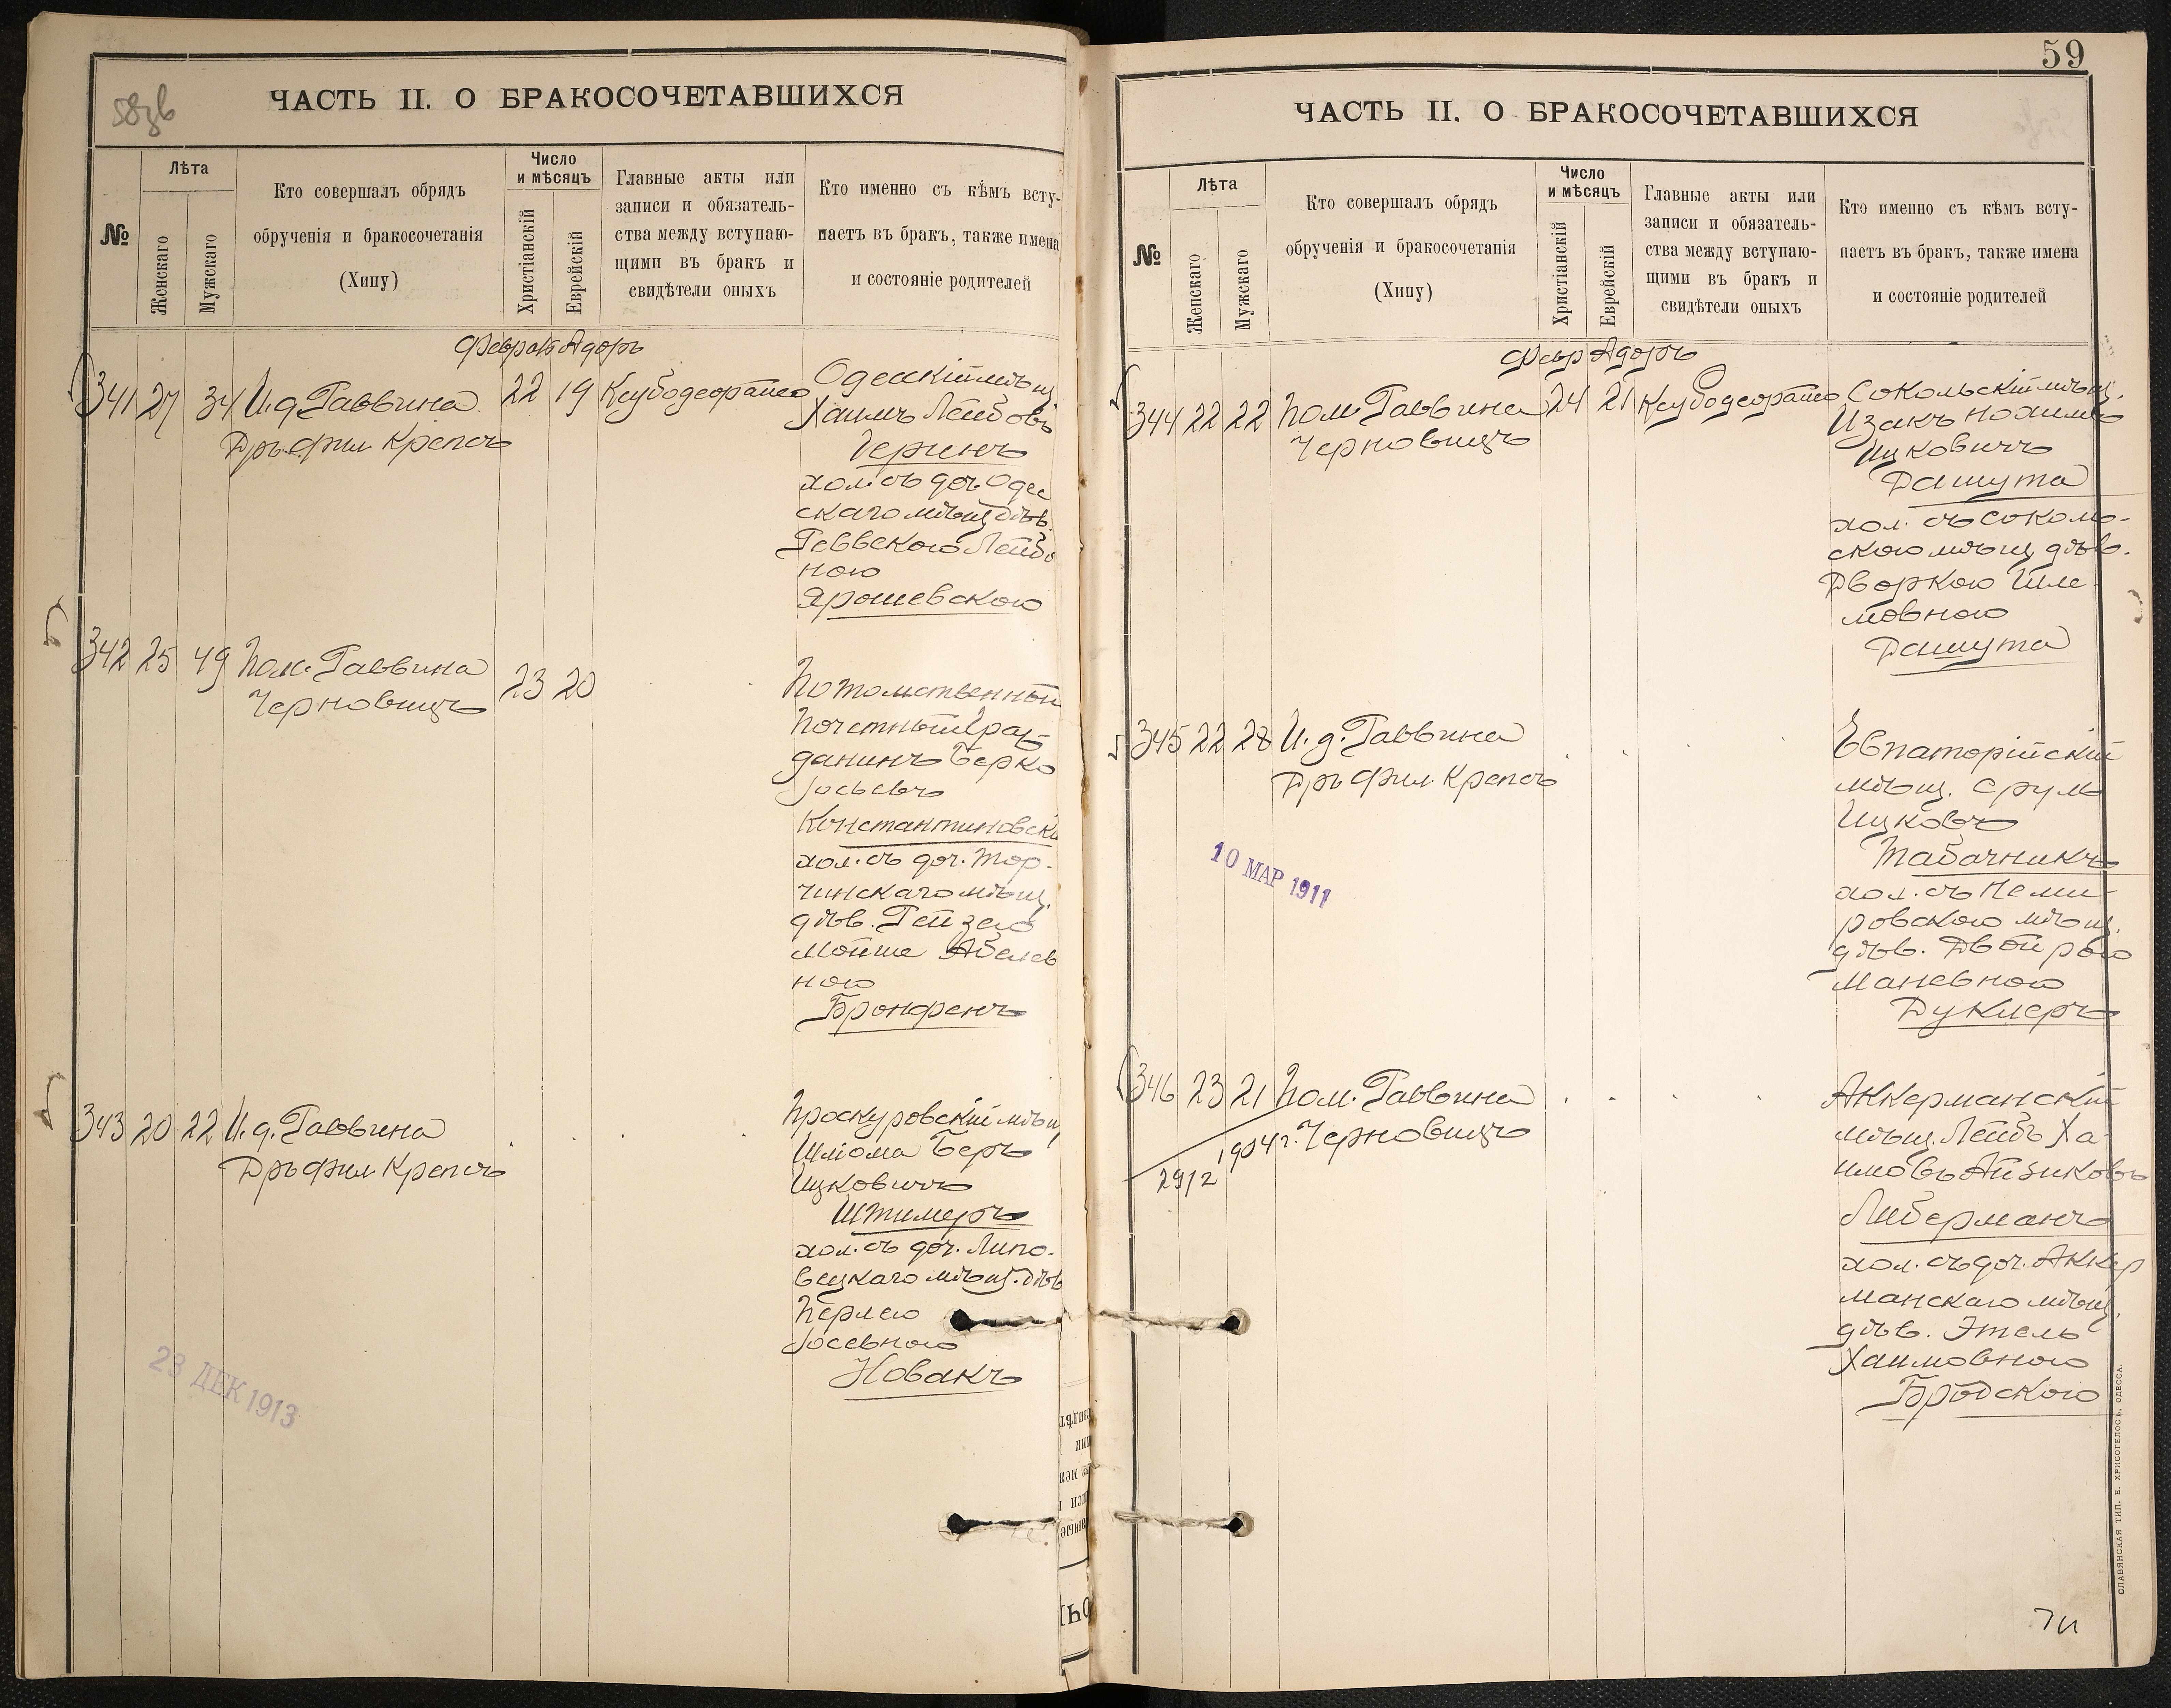 58зв
ЧАСТЬ II. О БРАКОСОЧЕТАВШИХСЯ
№
Лѣта
Женскаго
Мужскаго
Кто совершалъ обрядъ
обрученія и бракосочетанія
(Хипу)
Число
и мѣсяцъ
Христіанскій
Еврейскій
Главные акты или
записи и обязатель-
ства между вступаю-
щими въ бракъ и
свидѣтели оныхъ
Кто именно съ кѣмъ всту-
паетъ въ бракъ, также имена
и состояніе родителей
Феврал Адоръ
341 27 34 И. д. Раввина 22 19
Дръ фил Крепсъ
Одескій мѣщ.
Хаимъ Лейбовъ
Геринъ
хол. съ доч Одес
скаго мѣщ дѣв.
Реввекою Лейбо
ною
Ярошевскою
342 25 49 Пом. Раввина 23 20
Черновицъ
Потомственный
Почетный Граж
данинъ Берко
Іосьевъ
Константиновскі
хол. съ доч. Тор-
чинскаго мѣщ.
дѣв. Рейзею
Мойше Абелев
ною
Бронфенъ
343 20 22 И. д. Раввина
Дръ фил Крепсъ
Проскуровскій мѣщ
Шліома Беръ
Ицковичъ
Штимеръ
хол. съ доч. Липо-
вецкаго мѣщ. дѣв
Перлею
Іосевною
Новакъ
23 ДЕК 1913
59
ЧАСТЬ II. О БРАКОСОЧЕТАВШИХСЯ
№
Лѣта
Женскаго
Мужскаго
Кто совершалъ обрядъ
обрученія и бракосочетанія
(Хипу)
Число
и мѣсяцъ
Христіанскій
Еврейскій
Главные акты или
записи и обязатель-
ства между вступаю-
щими въ бракъ и
свидѣтели оныхъ
Кто именно съ кѣмъ всту-
паетъ въ бракъ, также имена
и состояніе родителей
Февр Адоръ
344 22 22 Пом. Раввина 24 21
Черновицъ
Сокольскій мѣщ.
Изакъ Нохимъ
Ицковичъ
Дашута
хол. съ Соколь-
скою мѣщ дѣв.
Дворкою Шле
мовною
Дашута
345 22 28 И. д. Раввина
Дръ Фил Крепсъ
Евпаторійскій
мѣщ. Срулъ
Ицковъ
Табачникъ
хол. съ Неми-
ровскою мѣщ.
дѣв. Двойрою
Маневною
Дуклеръ
10 МАР 1911
346 23 21 Пом. Раввина
29/2 1904 г. Черновицъ
Аккерманскій
мѣщ. Лейбъ Ха-
имовъ Айзиковъ
Либерманъ
хол. съ доч. Аккер
манскаго мѣщ.
дѣв. Этель
Хаимовною
Бродскою
СЛАВЯНСКАЯ ТИП. Е. ХРИСОГЕЛОСЪ, ОДЕССА.